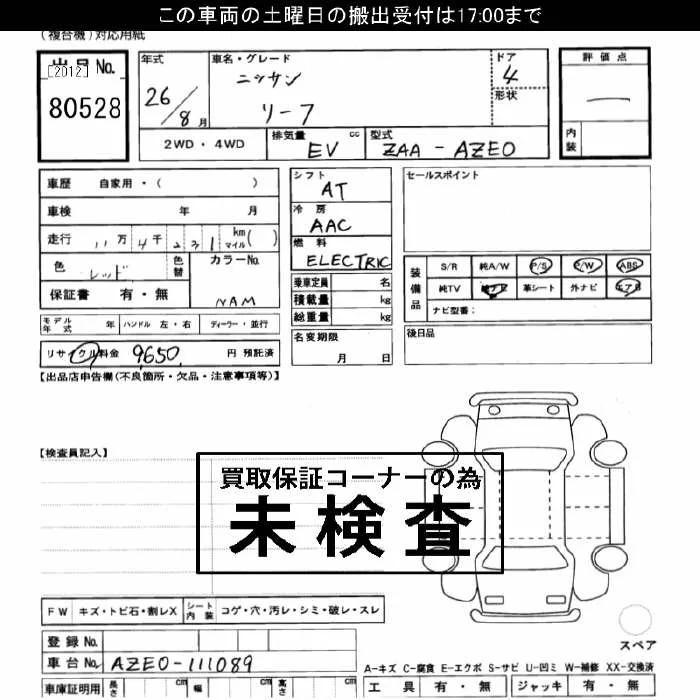 この車両の土曜日の搬出受付は17:00まで
(複合機)対応用紙
出品No. [2012]
80528
年式 26/8月
車名・グレード ニッサン
リーフ
ドア 4
形状
評価点
—
内装
2WD・4WD
排気量 cc EV
型式 ZAA-AZE0
車歴 自家用・( )
車検 年 月
走行 11万4千231 km マイル( )
色 レッド 色替
カラーNo. NAM
保証書 有・無
シフト AT
冷房 AAC
燃料 ELECTRIC
乗車定員 名
積載量 kg
総重量 kg
セールスポイント
装備品
S/R 純A/W P/S P/W ABS
純TV 純ナビ 革シート 外ナビ エアB
ナビ型番:
モデル年式 年 ハンドル 左・右 ディーラー・並行
名変期限 月 日
後日品
リサイクル料金 9650 円 預託済
【出品店申告欄(不良箇所・欠品・注意事項等)】
【検査員記入】
買取保証コーナーの為
未検査
FW キズ・トビ石・割レX シート内装 コゲ・穴・汚レ・シミ・破レ・スレ
登録No.
車台No. AZE0-111089
スペア
A-キズ C-腐食 E-エクボ S-サビ U-凹ミ W-補修 XX-交換済
車庫証明用 長さ cm 幅 cm 高さ cm
工具 有・無 ジャッキ 有・無